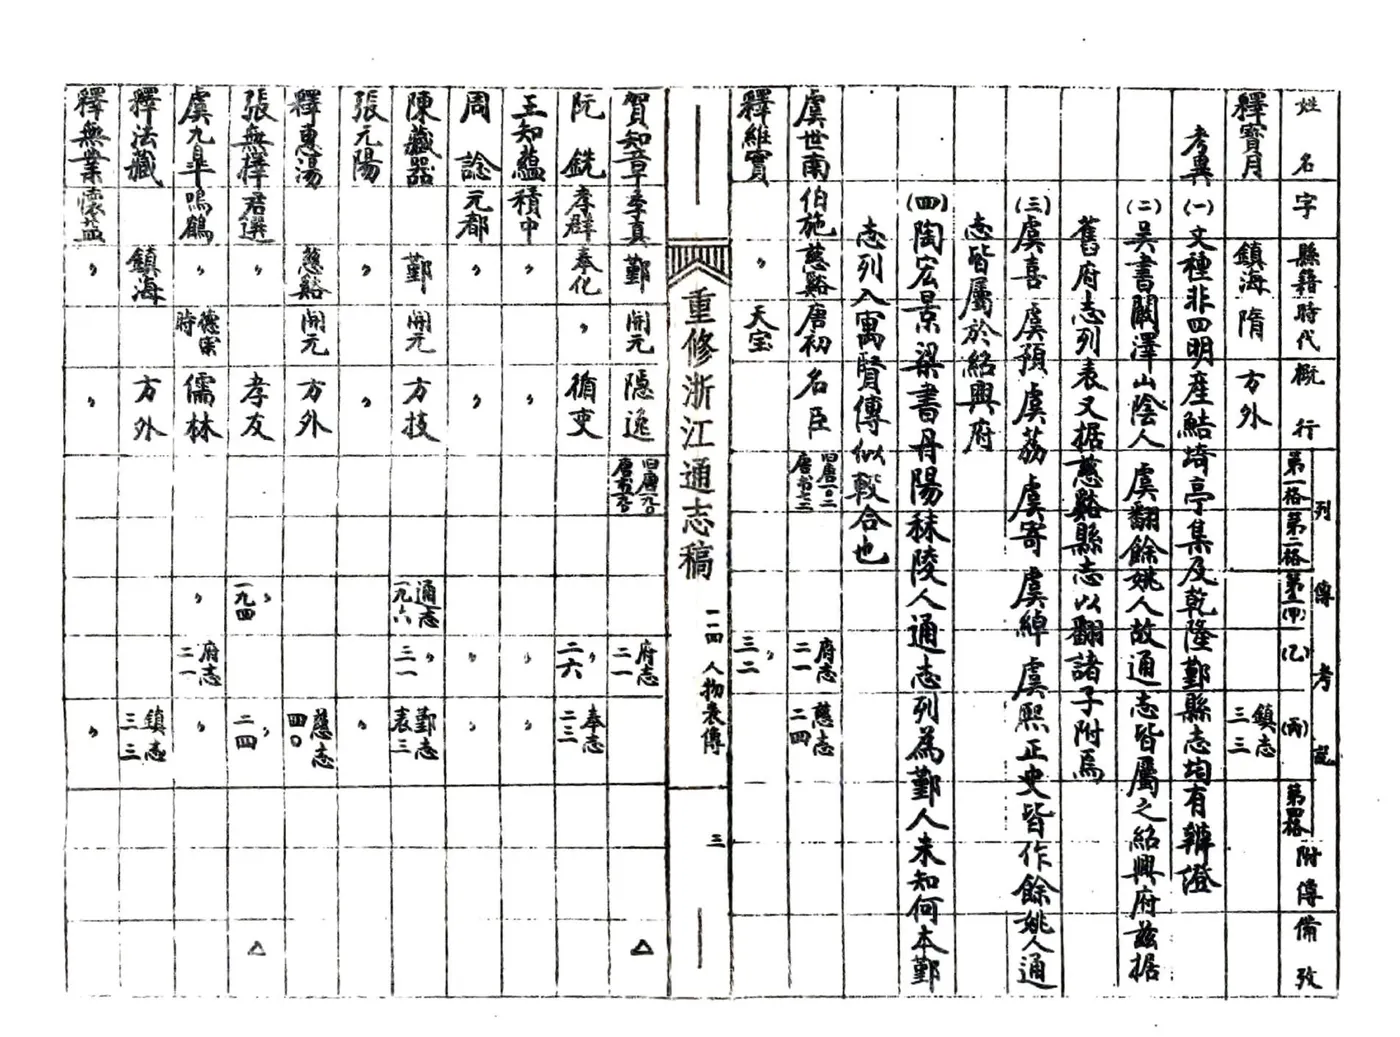 姓名 字 縣籍 時代 概行 列傳考記 第一格 第二格 第三(甲) (乙) (丙) 第四格 附傳 備攷
釋寶月 鎮海 隋 方外 鎮志三三
考異(一)文種非四明產鮚埼亭集及乾隆鄞縣志均有辨證
(二)吳書闞澤山陰人虞翻餘姚人故通志皆屬之紹興府茲据
舊府志列表又据慈谿縣志以翻諸子附焉
(三)虞喜虞預虞荔虞寄虞綽虞熙正史皆作餘姚人通
志皆屬於紹興府
(四)陶宏景梁書丹陽秣陵人通志列為鄞人未知何本鄞
志列入寓賢傳似較合也
虞世南 伯施 慈谿 唐初 名臣 旧唐一〇二 唐書七二 府志二一 慈志二四
釋維實 〃 天宝 〃三二
重修浙江通志稿 一二四 人物表傳 三
賀知章 季真 鄞 開元 隱逸 旧唐一九〇 唐書 府志二一 △
阮銑 孝群 奉化 〃 循吏 〃二六 奉志二三
王知蘊 積中 〃 〃 〃 〃
周諗 元都 〃 〃 〃 〃
陳藏器 鄞 開元 方技 通志一九六 〃三一 鄞志表三
張元陽 〃 〃 〃
釋惠湯 慈谿 開元 方外 慈志四〇
張無擇 君選 〃 孝友 〃一九四 〃二四 △
虞九皐 鳴鶴 〃 德宗時 儒林 〃 府志二一 〃
釋法藏 鎮海 方外 鎮志三三
釋無業 懷益 〃 〃 〃